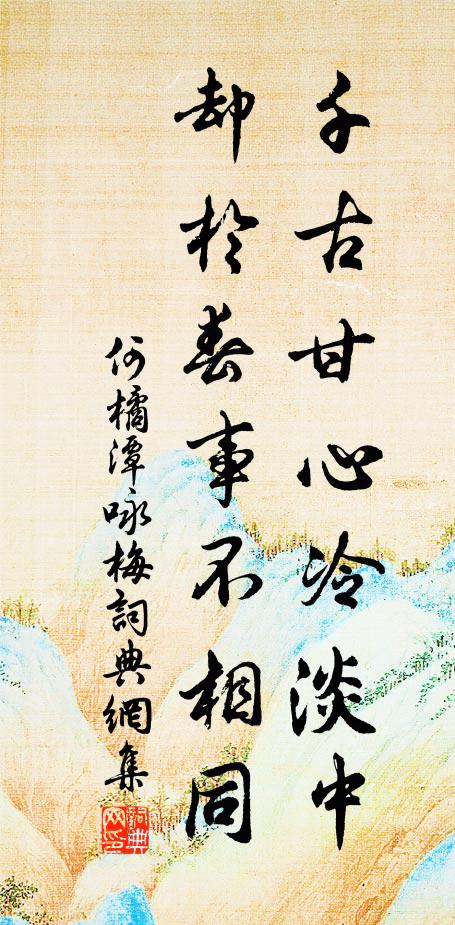 千古甘心冷淡中
却於春事不相同
何橘潭咏梅詞典網集
詞典